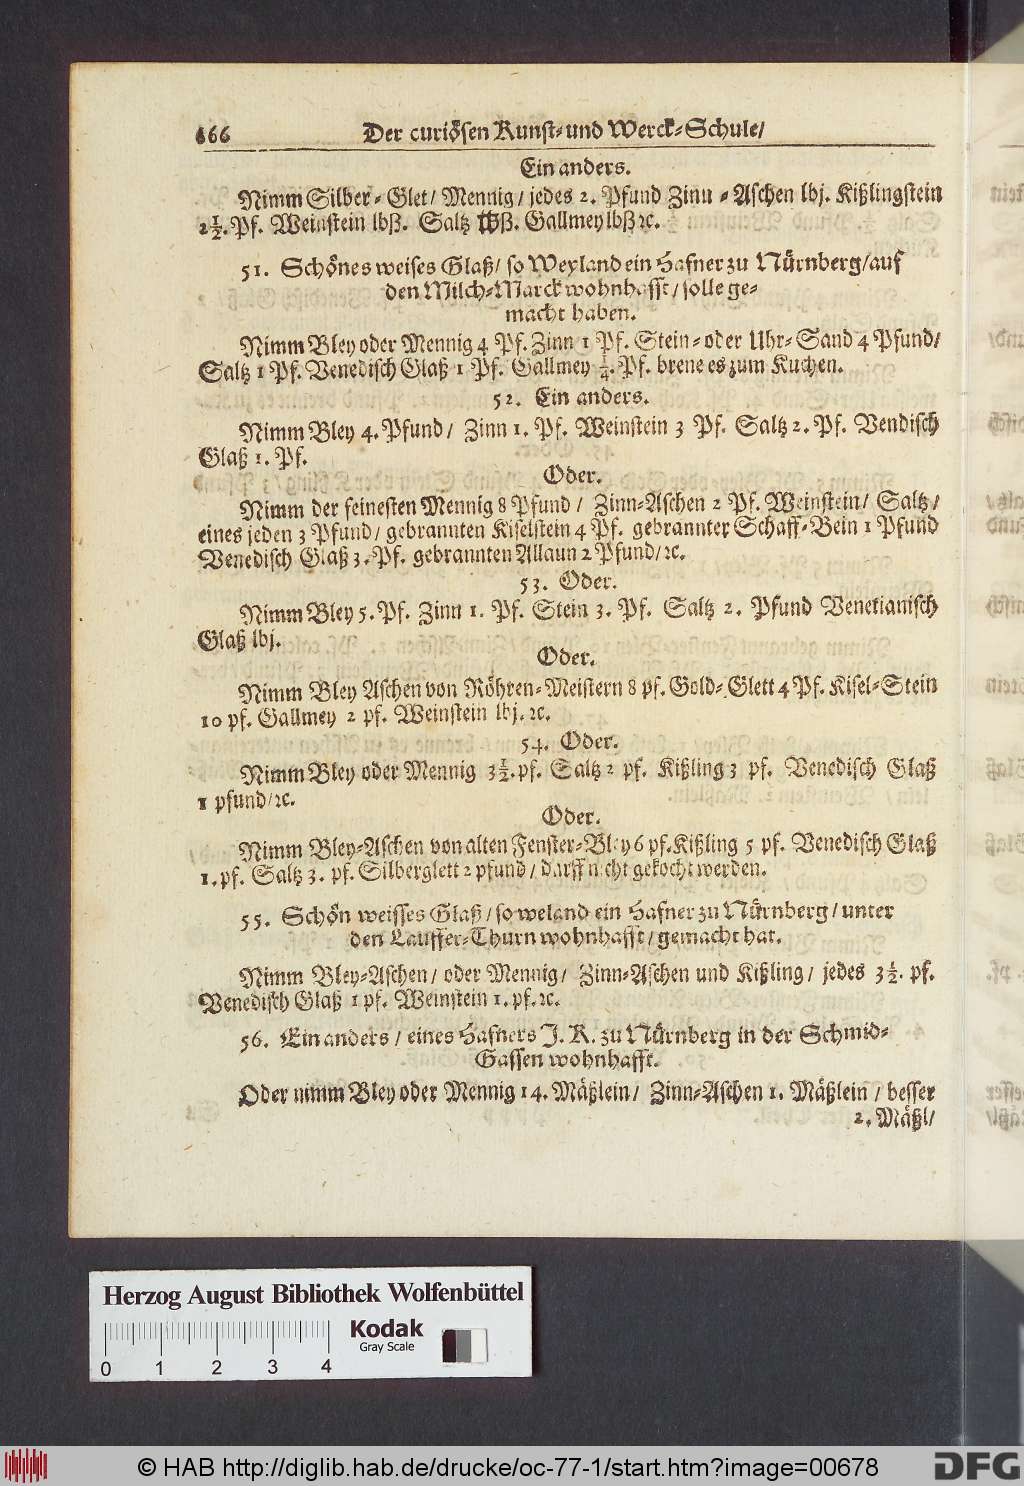 666 Der curiösen Kunst- und Werck-Schule/
Ein anders.
Nimm Silber-Glet/ Mennig/ jedes 2. Pfund Zinn-Aschen lbj. Kißlingstein
2½. Pf. Weinstein lbß. Saltz lbß. Gallmey lbß ꝛc.
51. Schönes weises Glaß/ so Weyland ein Hafner zu Nürnberg/ auf
den Milch-Marck wohnhafft/ solle ge-
macht haben.
Nimm Bley oder Mennig 4 Pf. Zinn 1 Pf. Stein- oder Uhr-Sand 4 Pfund/
Saltz 1 Pf. Venedisch Glaß 1 Pf. Gallmey ¼. Pf. brene es zum Kuchen.
52. Ein anders.
Nimm Bley 4. Pfund/ Zinn 1. Pf. Weinstein 3 Pf. Saltz 2. Pf. Vendisch
Glaß 1. Pf.
Oder.
Nimm der feinesten Mennig 8 Pfund/ Zinn-Aschen 2 Pf. Weinstein/ Saltz/
eines jeden 3 Pfund/ gebrannten Kiselstein 4 Pf. gebrannter Schaff-Bein 1 Pfund
Venedisch Glaß 3. Pf. gebrannten Allaun 2 Pfund/ ꝛc.
53. Oder.
Nimm Bley 5. Pf. Zinn 1. Pf. Stein 3. Pf. Saltz 2. Pfund Venetianisch
Glaß lbj.
Oder.
Nimm Bley Aschen von Röhren-Meistern 8 pf. Gold-Glett 4 Pf. Kisel-Stein
10 pf. Gallmey 2 pf. Weinstein lbj. ꝛc.
54. Oder.
Nimm Bley oder Mennig 3½. pf. Saltz 2 pf. Kißling 3 pf. Venedisch Glaß
1 pfund/ ꝛc.
Oder.
Nimm Bley-Aschen von alten Fenster-Bley 6 pf. Kißling 5 pf. Venedisch Glaß
1. pf. Saltz 3. pf. Silberglett 2 pfund/ darff nicht gekocht werden.
55. Schön weisses Glaß/ so weland ein Hafner zu Nürnberg/ unter
den Lauffer-Thurn wohnhafft/ gemacht hat.
Nimm Bley-Aschen/ oder Mennig/ Zinn-Aschen und Kißling/ jedes 3½. pf.
Venedisch Glaß 1 pf. Weinstein 1. pf. ꝛc.
56. Ein anders/ eines Hafners J. K. zu Nürnberg in der Schmid-
Gassen wohnhafft.
Oder nimm Bley oder Mennig 14. Mäßlein/ Zinn-Aschen 1. Mäßlein/ besser
2. Mäßl/
Herzog August Bibliothek Wolfenbüttel
Kodak
Gray Scale
0 1 2 3 4
© HAB http://diglib.hab.de/drucke/oc-77-1/start.htm?image=00678
DFG